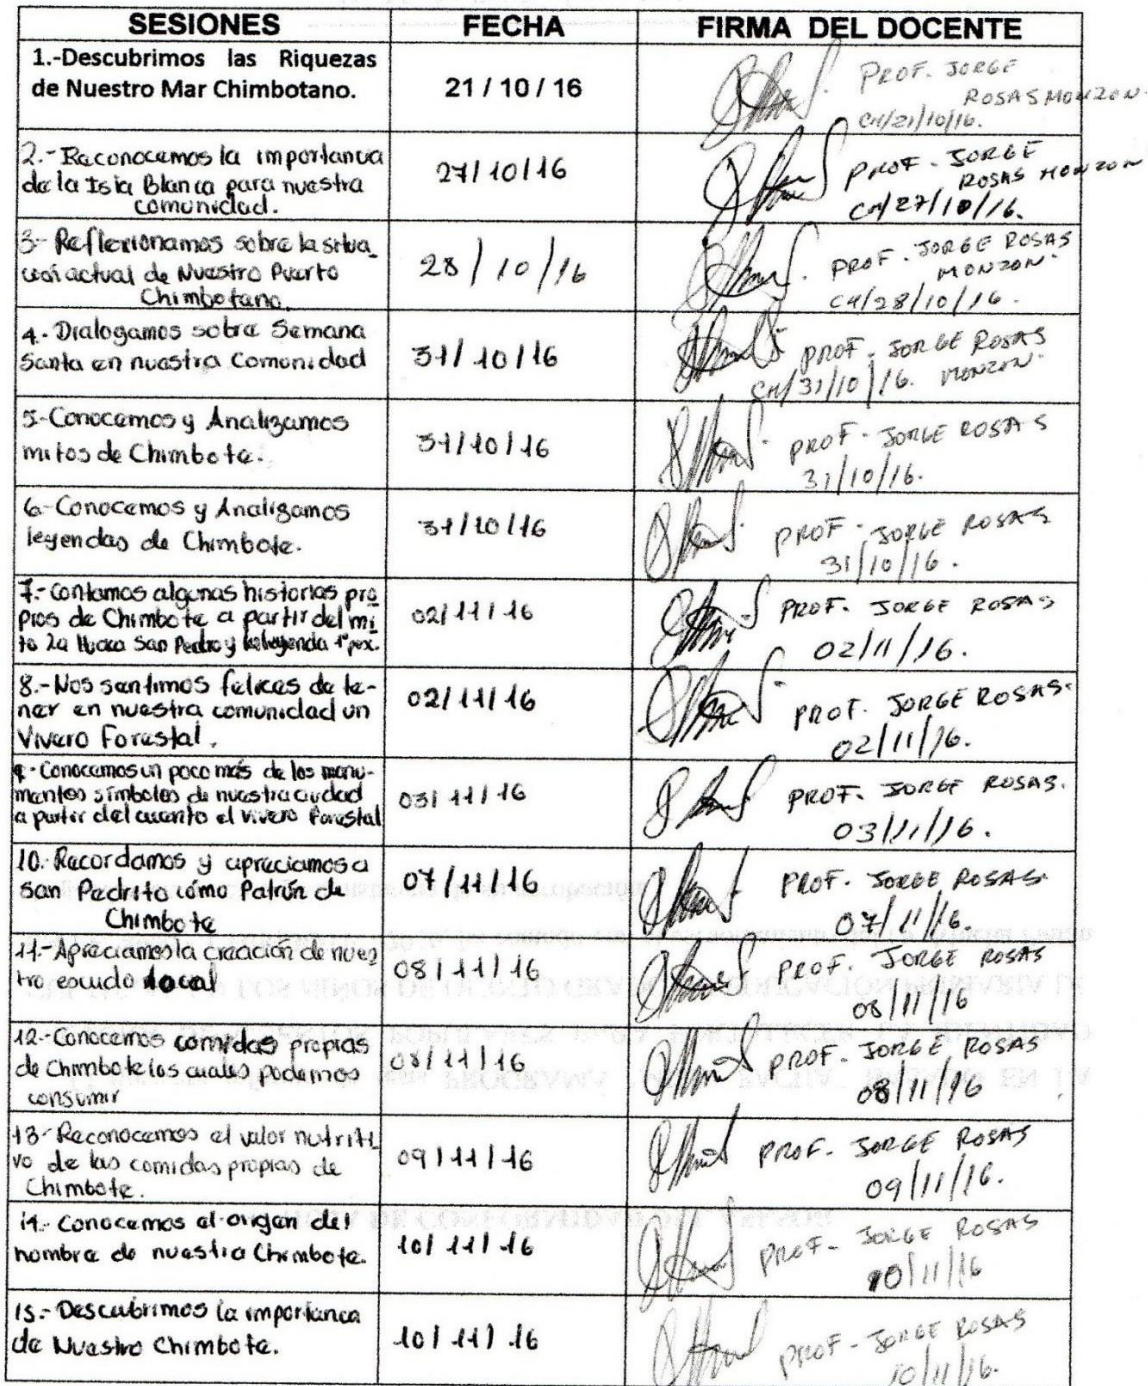 SESIONES FECHA FIRMA DEL DOCENTE
1.-Descubrimos las Riquezas
de Nuestro Mar Chimbotano.
21 / 10 / 16
PROF. JORGE
ROSAS MONZON.
CH/21/10/16.
2.- Reconocemos la importancia
de la Isla Blanca para nuestra
comunidad.
27/10/16
PROF - JORGE
ROSAS MONZON
CH/27/10/16.
3.- Reflexionamos sobre la situa_
ción actual de Nuestro Puerto
Chimbotano.
28 / 10 / 16
PROF. JORGE ROSAS
MONZON.
CH/28/10/16.
4.- Dialogamos sobre Semana
Santa en nuestra Comunidad
31/10/16
PROF. JORGE ROSAS
MONZON.
CH/31/10/16.
5.-Conocemos y Analizamos
mitos de Chimbote.
31/10/16
PROF - JORGE ROSAS
31/10/16.
6.-Conocemos y Analizamos
leyendas de Chimbote.
31/10/16
PROF - JORGE ROSAS
31/10/16.
7.- Contamos algunas historias pro
pias de Chimbote a partir del mi
to La Huaca San Pedro y la leyenda 1º
02/11/16
PROF. JORGE ROSAS
02/11/16.
8.-Nos sentimos felices de te-
ner en nuestra comunidad un
Vivero Forestal.
02/11/16
PROF. JORGE ROSAS.
02/11/16.
9.-Conocemos un poco más de los monu-
mentos símbolos de nuestra ciudad
a partir del cuento el vivero Forestal
03/11/16
PROF. JORGE ROSAS.
03/11/16.
10.-Recordamos y apreciamos a
San Pedrito cómo Patrón de
Chimbote
07/11/16
PROF. JORGE ROSAS.
07/11/16.
11.-Apreciamos la creación de nues
tro escudo local
08/11/16
PROF. JORGE ROSAS
08/11/16
12.-Conocemos comidas propias
de Chimbote los cuales podemos
consumir
08/11/16
PROF. JORGE ROSAS
08/11/16
13.-Reconocemos el valor nutriti
vo de las comidas propias de
Chimbote.
09/11/16
PROF. JORGE ROSAS
09/11/16.
14.- Conocemos el origen del
nombre de nuestra Chimbote.
10/11/16
PROF - JORGE ROSAS
10/11/16
15.- Descubrimos la importanca
de Nuestro Chimbote.
10/11/16
PROF - JORGE ROSAS
10/11/16.